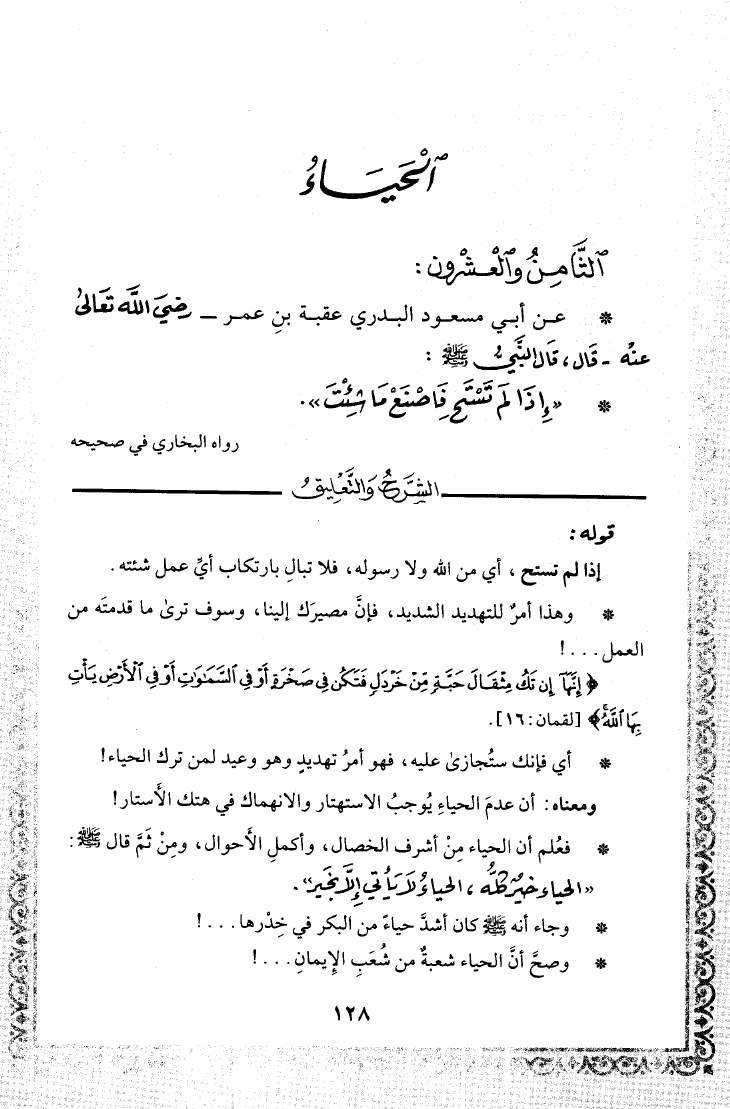 ٱلْحَيَاءُ
ٱلثَّامِنُ وَٱلْعِشْرُون :
* عن أبي مسعود البدري عقبة بنِ عمر ــ رَضِيَ اللَّه تَعَالَىٰ
عَنْه - قَال ، قَال النَّبِيُّ ﷺ :
* «إِذَا لَمْ تَسْتَحِ فَاصْنَعْ مَا شِئْتَ».
رواه البخاري في صحيحه
الشَّرْحُ وَالتَّعْلِيقُ
قوله :
إذا لم تستح ، أي من الله ولا رسوله ، فلا تبالِ بارتكاب أيِّ عمل شئته .
* وهذا أمرٌ للتهديد الشديد، فإنَّ مصيرَك إلينا، وسوف ترىٰ ما قدمتَه من
العمل . . . !
﴿ إِنَّهَآ إِن تَكُ مِثْقَالَ حَبَّةٍ مِّنْ خَرْدَلٍ فَتَكُن فِي صَخْرَةٍ أَوْ فِي ٱلسَّمَٰوَٰتِ أَوْ فِي ٱلْأَرْضِ يَأْتِ
بِهَا ٱللَّهُ ﴾ [لقمان: ١٦].
* أي فإنك ستُجازىٰ عليه، فهو أمرُ تهديدٍ وهو وعيد لمن ترك الحياء!
ومعناه : أن عدمَ الحياءِ يُوجبُ الاستهتار والانهماك في هتك الأستار!
* فعُلم أن الحياء مِنْ أشرف الخصال، وأكملِ الأحوال، ومِنْ ثَمَّ قال ﷺ:
«الحياء خَيْرٌ كلُّه ، الحياءُ لَا يَأْتِي إِلَّا بِخَيْرٍ».
* وجاء أنه ﷺ كان أشدَّ حياءً من البكر في خِدْرها . . . !
* وصحَّ أنَّ الحياء شعبةٌ من شُعَبِ الإيمانِ . . . !
١٢٨